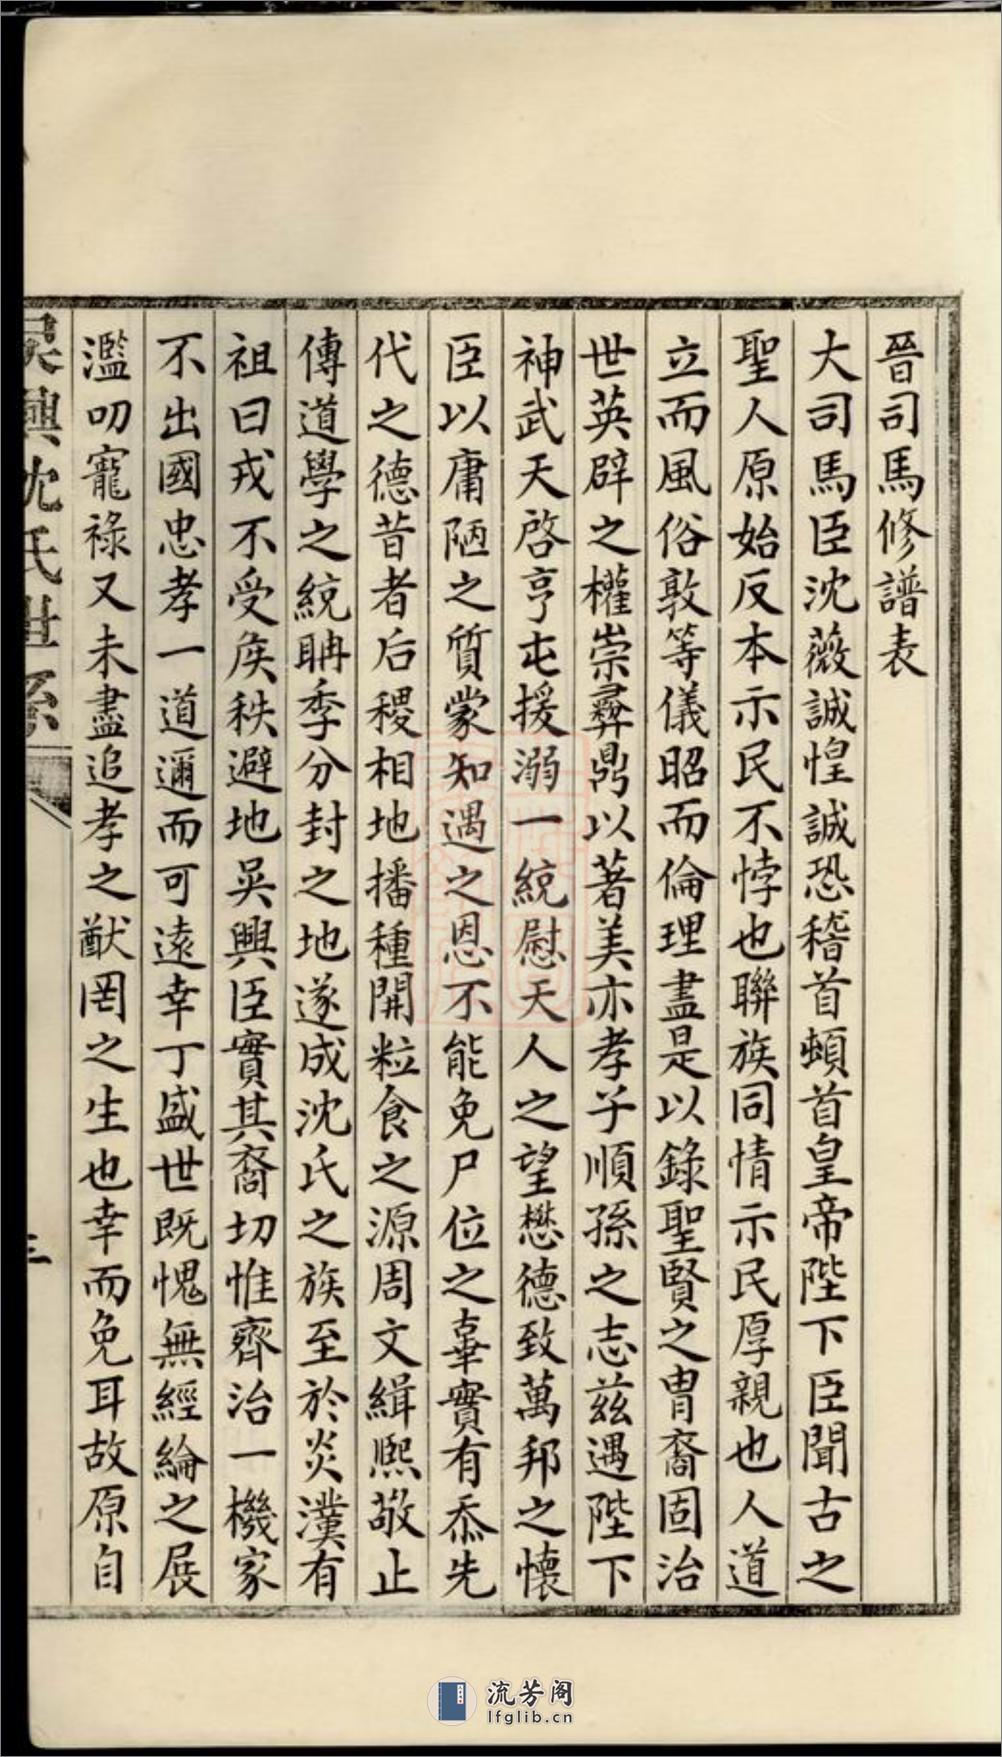 晉司馬修譜表
大司馬臣沈薇誠惶誠恐稽首頓首皇帝陛下臣聞古之
聖人原始反本示民不悖也聯族同情示民厚親也人道
立而風俗敦等儀昭而倫理盡是以錄聖賢之胄裔固治
世英辟之權崇彛鼎以著美亦孝子順孫之志茲遇陛下
神武天啓亨屯援溺一統慰天人之望懋德致萬邦之懷
臣以庸陋之質蒙知遇之恩不能免尸位之辜實有忝先
代之德昔者后稷相地播種開粒食之源周文緝熙敬止
傳道學之統聃季分封之地遂成沈氏之族至於炎漢有
祖曰戎不受侯秩避地吳興臣實其裔切惟齊治一機家
不出國忠孝一道邇而可遠幸丁盛世既愧無經綸之展
濫叨寵祿又未盡追孝之猷罔之生也幸而免耳故原自
吳興沈氏世系
三
流芳阁
lfglib.cn